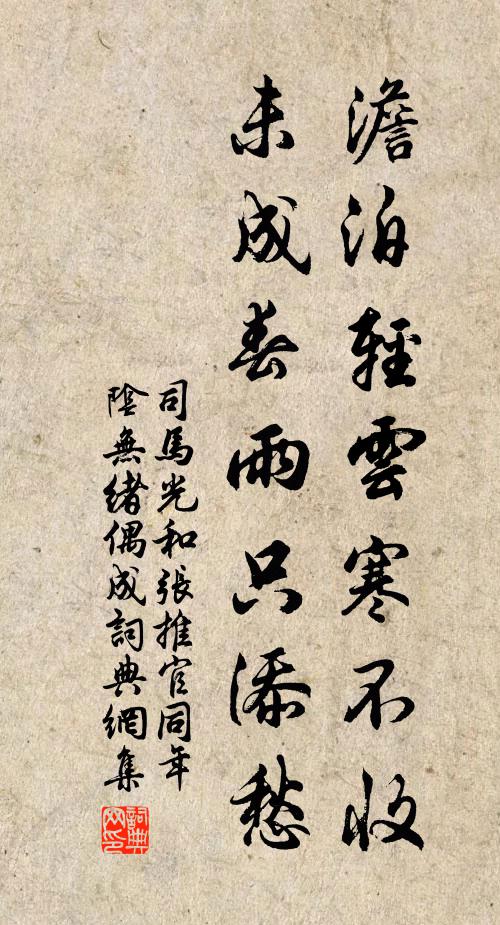 澹泊輕雲寒不收
未成春雨只添愁
司馬光和張推官同年
陰無緒偶成詞典網集
詞典
网印